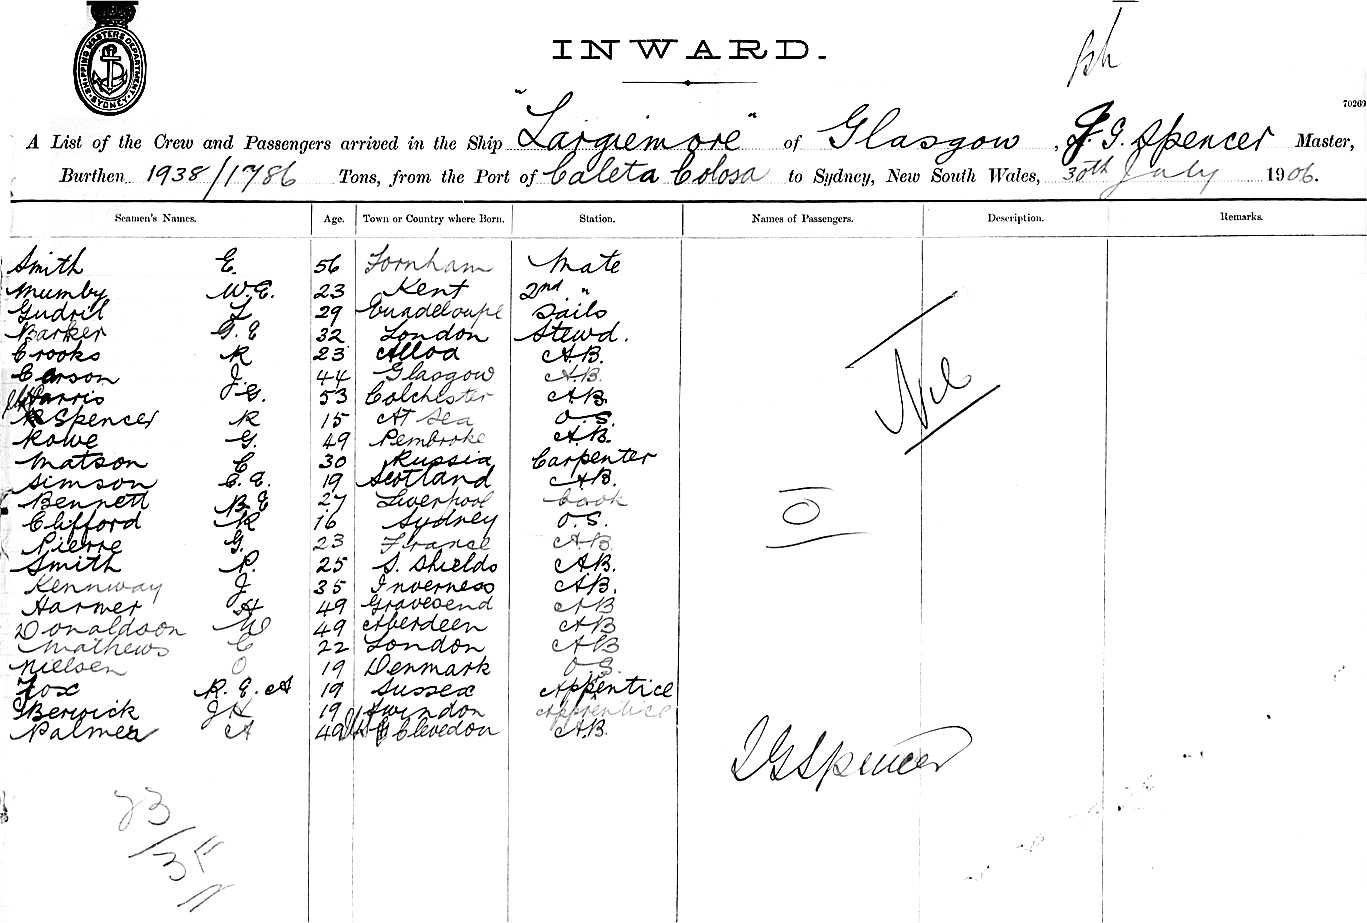 SHIPPING MASTERS DEPARTMENT SYDNEY
INWARD.
70269
A List of the Crew and Passengers arrived in the Ship "Largiemore" of Glasgow, J. G. Spencer Master,
Burthen 1938/1786 Tons, from the Port of Caleta Colosa to Sydney, New South Wales, 30th July 1906.
Seamen's Names. Age. Town or Country where Born. Station. Names of Passengers. Description. Remarks.
Smith E. 56 Fornham Mate
Mumby W.E. 23 Kent 2nd "
Gudril L 29 Guadeloupe Sails
Barker G.E 32 London Stewd.
Crooks R 23 Alloa A.B.
Carson J. 44 Glasgow A.B.
Harris J.G. 53 Colchester A.B.
Spencer R 15 At Sea O.S.
Rowe G. 49 Pembroke A.B.
Matson C 30 Russia Carpenter
Simson C.E. 19 Scotland A.B.
Bennett B.E 27 Liverpool Cook
Clifford R 16 Sydney O.S.
Pierre G. 23 France A.B
Smith P. 25 S. Shields A.B.
Kennway J. 35 Inverness A.B.
Harmer H 49 Gravesend A.B
Donaldson W 49 Aberdeen A.B
Mathews C 22 London A.B
Nielsen O 19 Denmark O.S.
Fox R.E.A 19 Sussex Apprentice
Berwick J H 19 Swindon Apprentice
Palmer A 49 Clevedon A.B.
Nil
O
J G Spencer
23